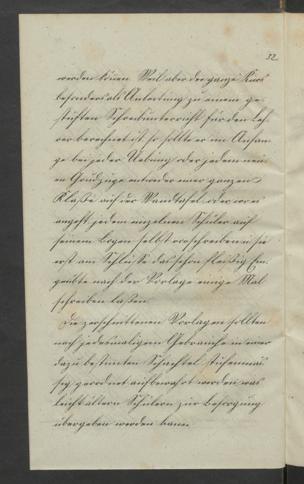 32
werden könen. Weil aber der ganze Kurs
besonders als Anleitung zu einem ge-
stuften Schreibunterricht für den Leh-
rer berechnet ist, so sollte er im Anfan-
ge bei jeder Uebung oder jedem neu-
en Grundzuge entweder einer ganzen
Klaße auf der Wandtafel, oder
jedem einzelnen Schüler auf
seinem Bogen selbst vorschreiben u. sie
erst am Schluße das schon fleißig Ein-
geübte nach der Vorlage einige Mal
schreiben laßen.
Die zerschnittenen Vorlagen sollten
nach jedesmaligem Gebrauche in einer
dazu bestimten Schachtel stufenmäs-
sig geordnet aufbewahrt werden, was
leicht ältern Schülern zur Besorgung
übergeben werden kann.